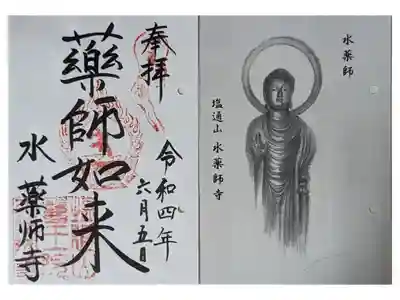 奉拝
藥師如来
令和四年
六月五日
水薬師寺
水薬師
塩通山 水薬師寺